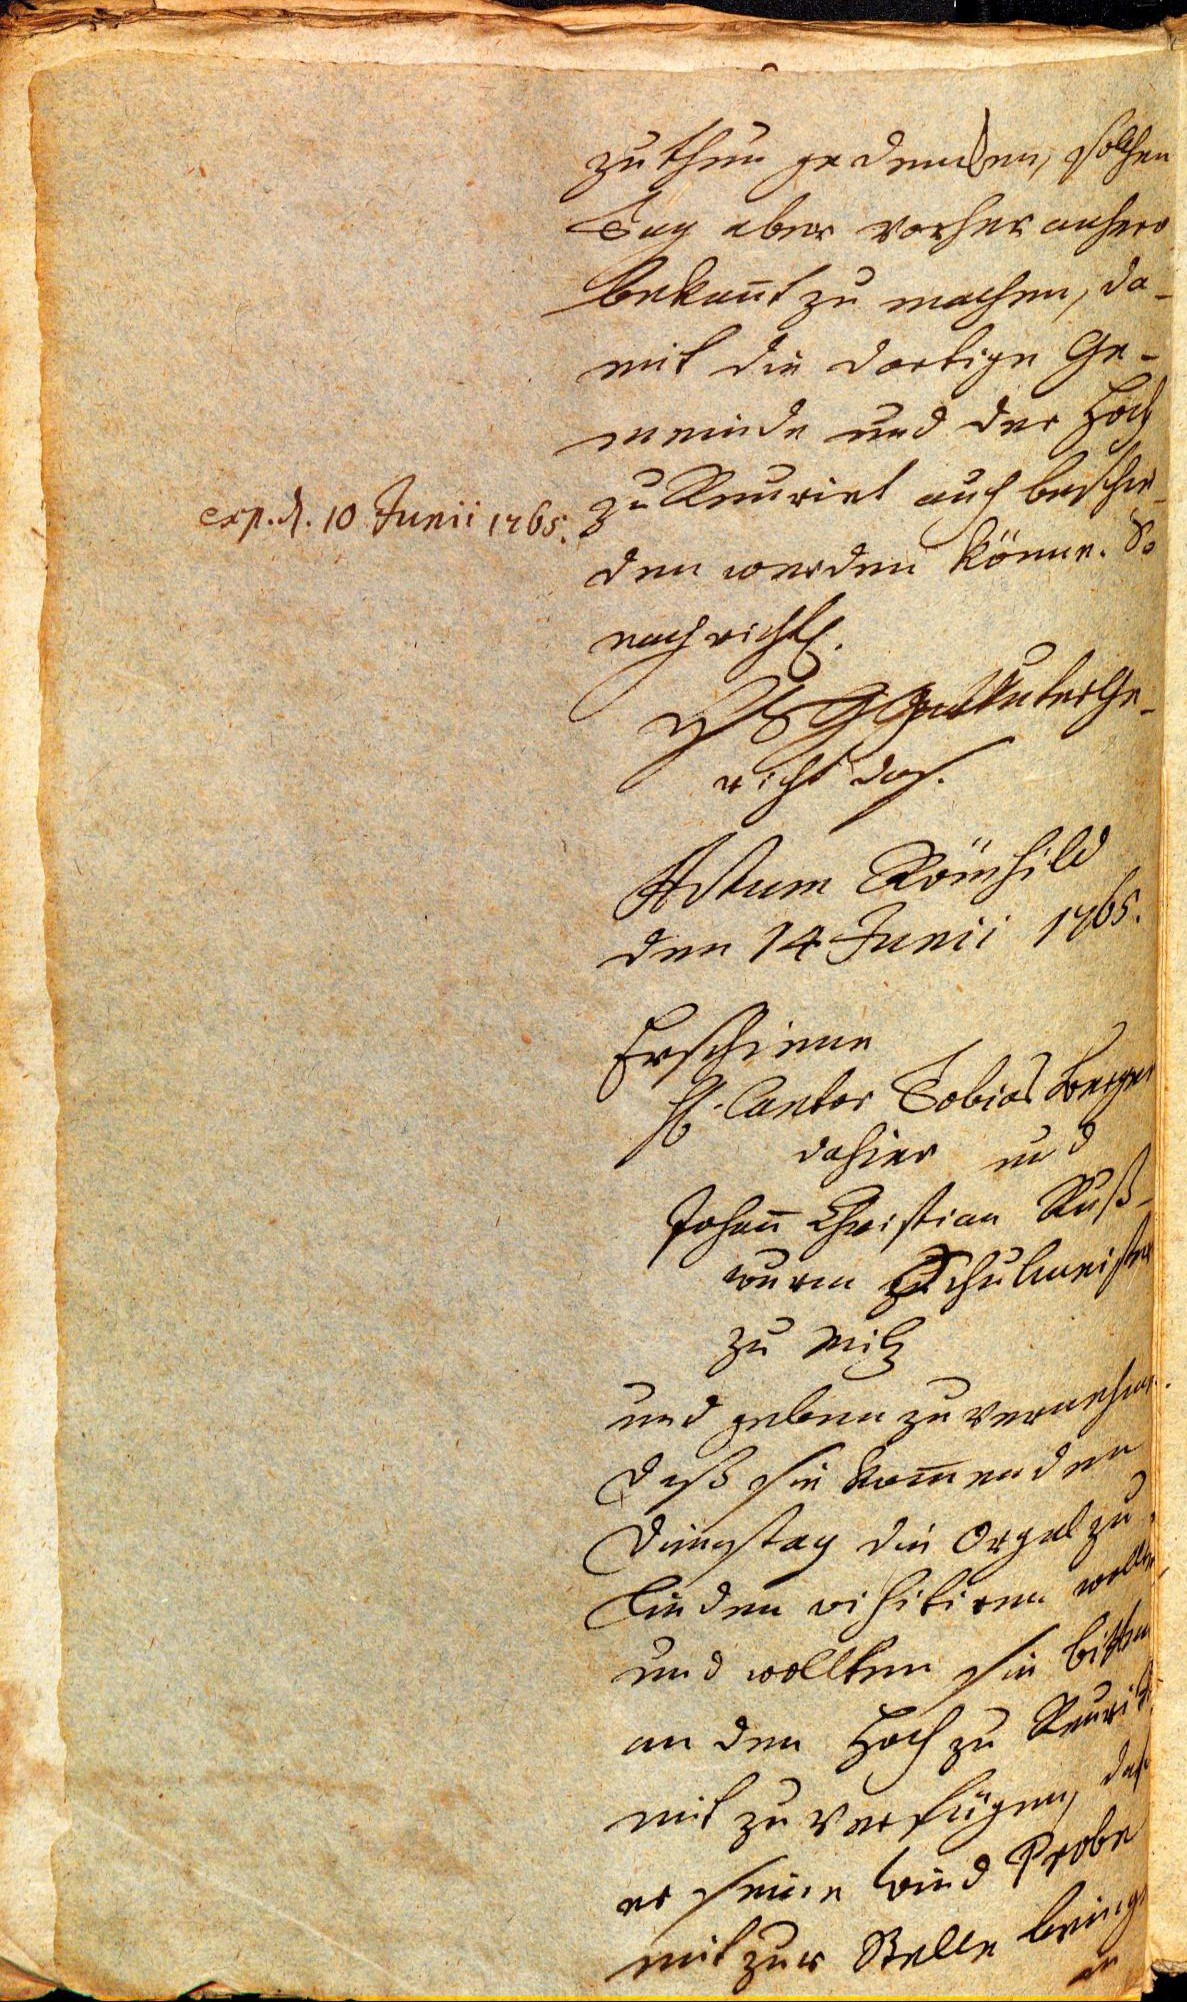 zu thun gedencken, solchen
Tag aber vorher anhero
bekannt zu machen, da-
mit die dortige Ge-
meinde und der Hoch
zu Reuriet auch beschie-
den werden könne. So
exp. d. 10 Junii 1765.
nachrichtl.
richt das.
Actum Römhild
den 14 Junii 1765.
Erschiene
H. Cantor Tobias Berger
dahier und
Johann Christian Ruß-
wurm Schulmeister
zu Milz
und geben zu vernehmen
daß sie kommenden
Dienstag die Orgel zu
Linden visitiren wollen
und wollten sie bitten
an den Hoch zu Reuriet
mit zu verfügen, daß
er seine Wind Probe
mit zur Stelle bringen